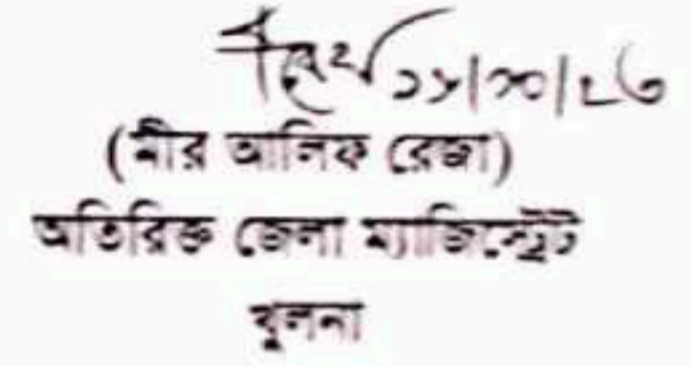 (মীর আলিফ রেজা)
অতিরিক্ত জেলা ম্যাজিস্ট্রেট
খুলনা